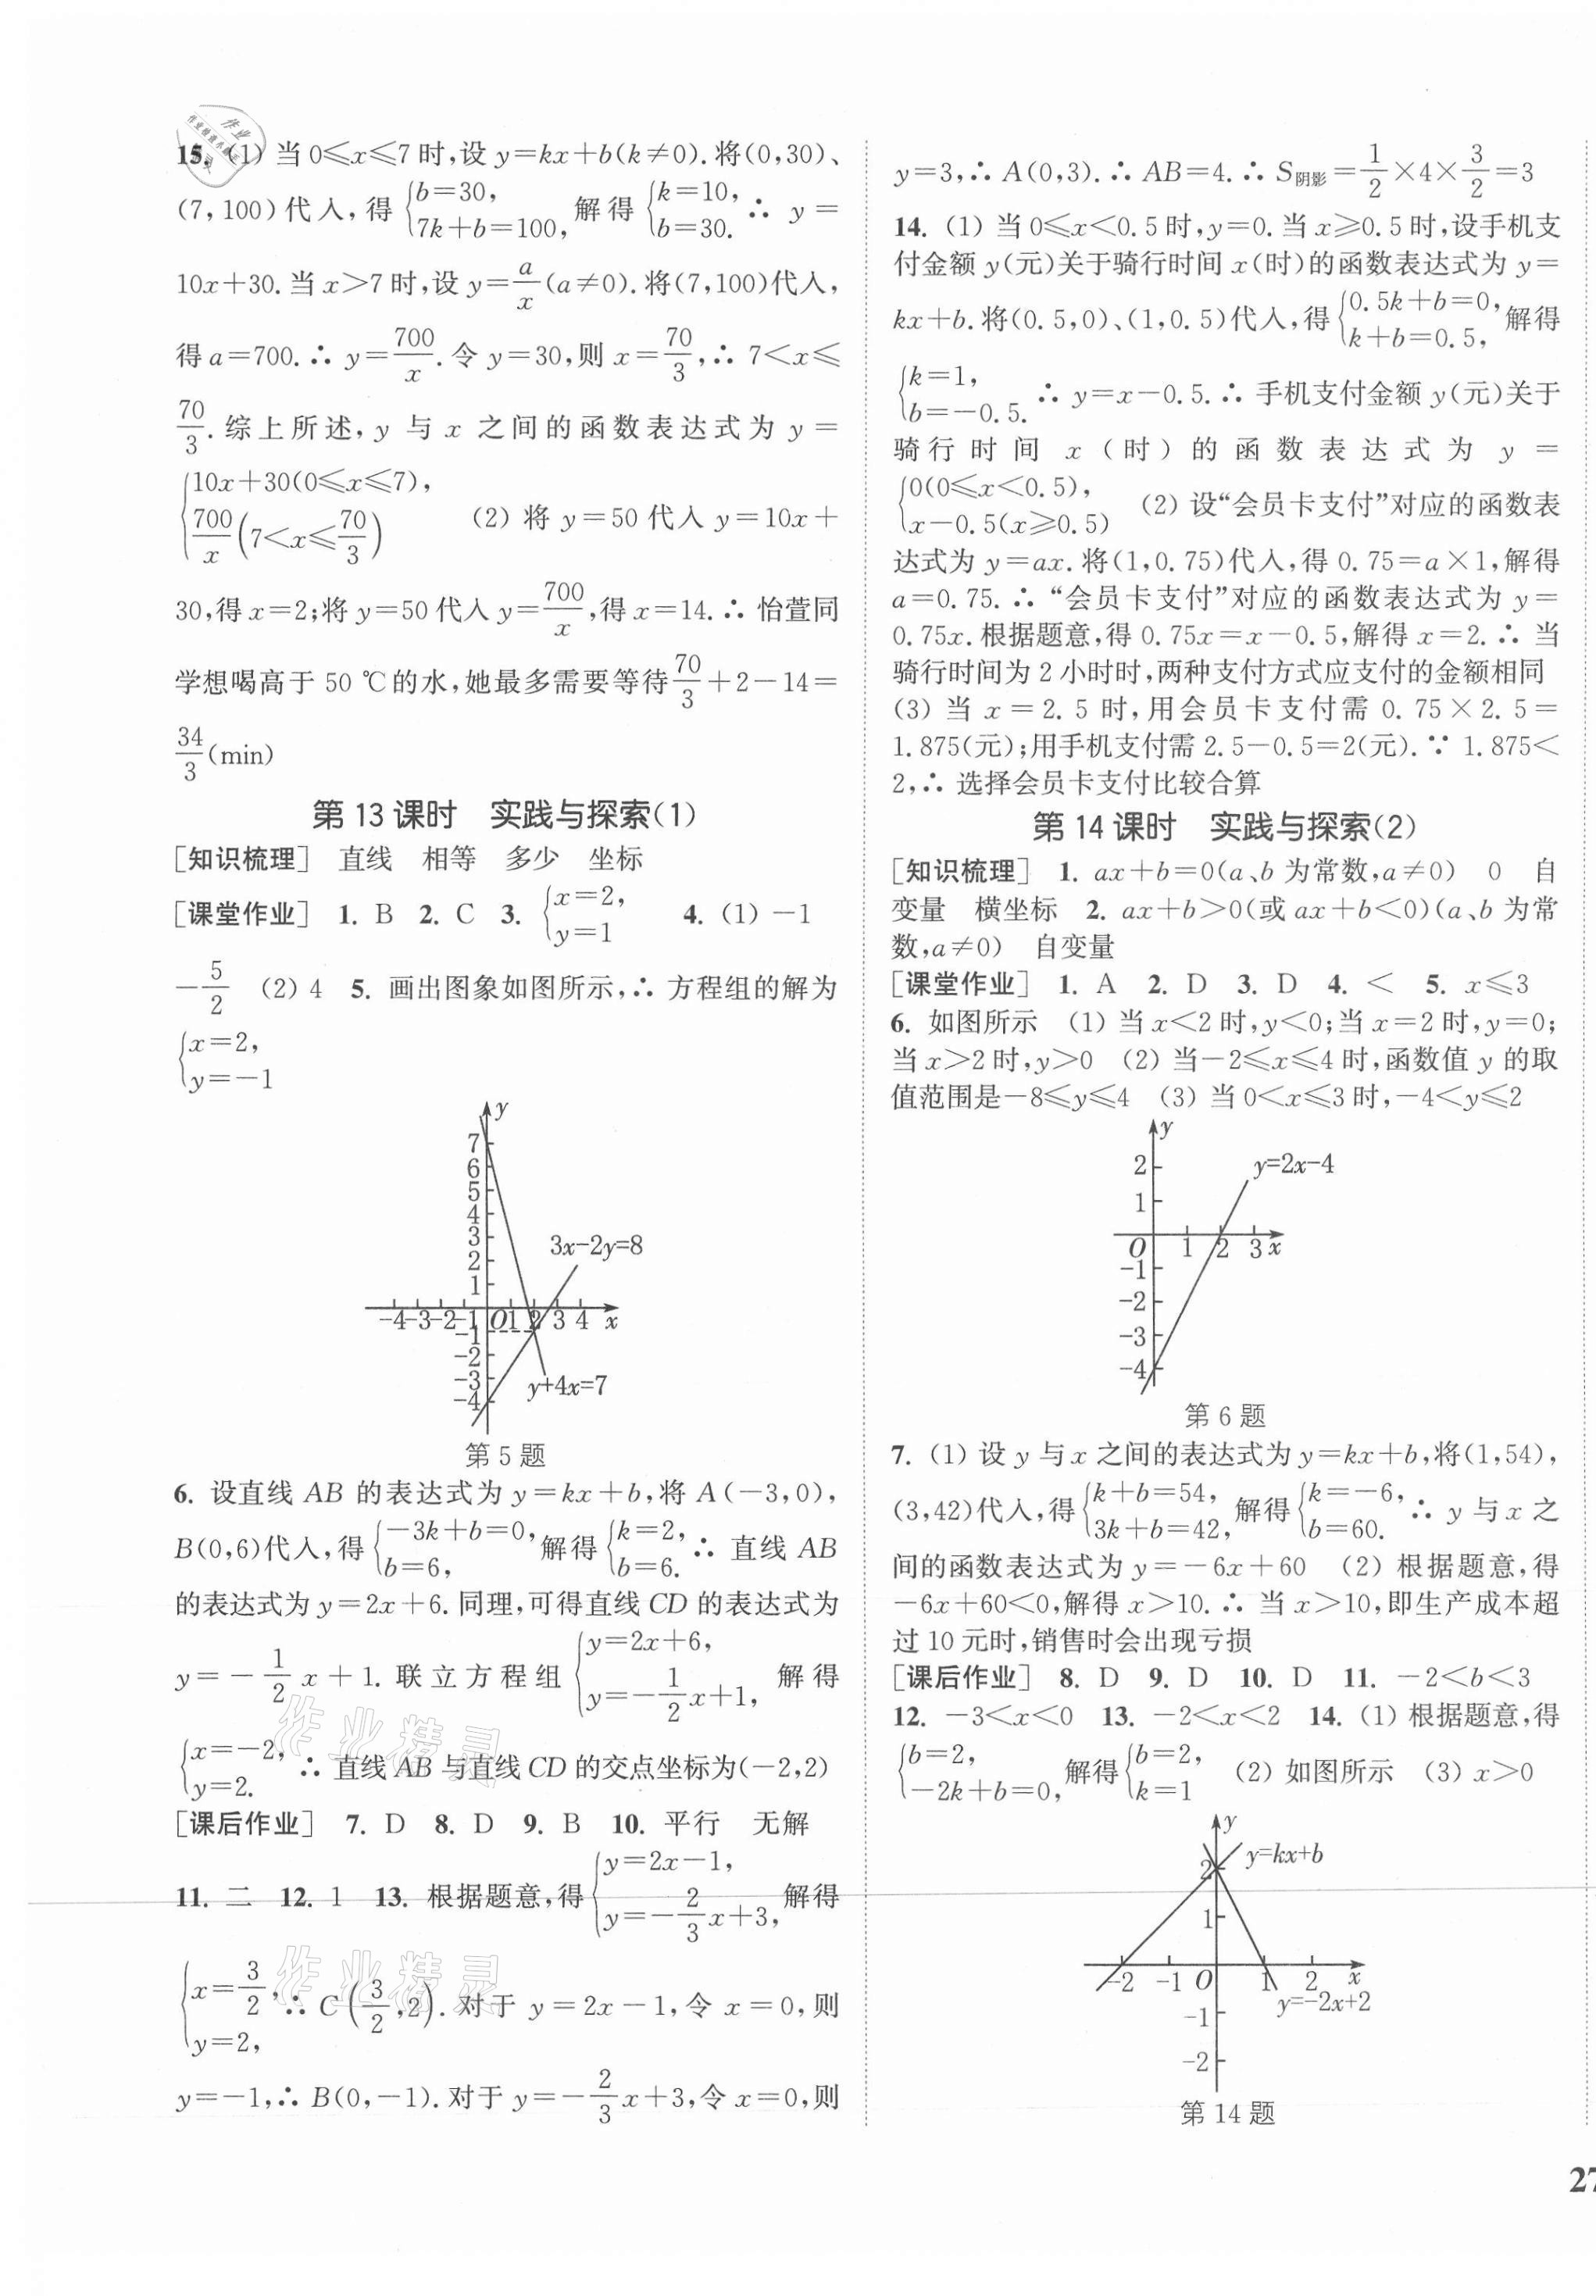 15. (1) 当 0≤x≤7 时,设 y=kx+b(k≠0). 将(0,30)、
(7,100)代入,得 {b=30, 7k+b=100, 解得 {k=10, b=30. ∴ y=
10x+30. 当 x>7 时,设 y=a/x(a≠0). 将(7,100)代入,
得 a=700. ∴ y=700/x. 令 y=30,则 x=70/3,∴ 7<x≤
70/3. 综上所述,y 与 x 之间的函数表达式为 y=
{10x+30(0≤x≤7), 700/x(7<x≤70/3) (2) 将 y=50 代入 y=10x+
30,得 x=2;将 y=50 代入 y=700/x,得 x=14. ∴ 怡萱同
学想喝高于 50 ℃的水,她最多需要等待70/3+2-14=
34/3(min)
第 13 课时 实践与探索(1)
[知识梳理] 直线 相等 多少 坐标
[课堂作业] 1. B 2. C 3. {x=2, y=1 4. (1) -1
-5/2 (2) 4 5. 画出图象如图所示,∴ 方程组的解为
{x=2, y=-1
y
7
6
5
4
3
2
1
3x-2y=8
-4 -3 -2 -1 O 1 2 3 4 x
-1
-2
-3
-4
y+4x=7
第 5 题
6. 设直线 AB 的表达式为 y=kx+b,将 A(-3,0),
B(0,6)代入,得 {-3k+b=0, b=6, 解得 {k=2, b=6. ∴ 直线 AB
的表达式为 y=2x+6. 同理,可得直线 CD 的表达式为
y=-1/2 x+1. 联立方程组 {y=2x+6, y=-1/2 x+1, 解得
{x=-2, y=2. ∴ 直线 AB 与直线 CD 的交点坐标为(-2,2)
[课后作业] 7. D 8. D 9. B 10. 平行 无解
11. 二 12. 1 13. 根据题意,得 {y=2x-1, y=-2/3 x+3, 解得
{x=3/2, y=2, ∴ C(3/2,2). 对于 y=2x-1,令 x=0,则
y=-1,∴ B(0,-1). 对于 y=-2/3 x+3,令 x=0,则
y=3,∴ A(0,3). ∴ AB=4. ∴ S阴影=1/2×4×3/2=3
14. (1) 当 0≤x<0.5 时,y=0. 当 x≥0.5 时,设手机支
付金额 y(元)关于骑行时间 x(时)的函数表达式为 y=
kx+b. 将(0.5,0)、(1,0.5)代入,得 {0.5k+b=0, k+b=0.5, 解得
{k=1, b=-0.5. ∴ y=x-0.5. ∴ 手机支付金额 y(元)关于
骑行时间 x(时)的函数表达式为 y=
{0(0≤x<0.5), x-0.5(x≥0.5) (2) 设“会员卡支付”对应的函数表
达式为 y=ax. 将(1,0.75)代入,得 0.75=a×1,解得
a=0.75. ∴ “会员卡支付”对应的函数表达式为 y=
0.75x. 根据题意,得 0.75x=x-0.5,解得 x=2. ∴ 当
骑行时间为 2 小时时,两种支付方式应支付的金额相同
(3) 当 x=2.5 时,用会员卡支付需 0.75×2.5=
1.875(元);用手机支付需 2.5-0.5=2(元). ∵ 1.875<
2,∴ 选择会员卡支付比较合算
第 14 课时 实践与探索(2)
[知识梳理] 1. ax+b=0(a、b 为常数,a≠0) 0 自
变量 横坐标 2. ax+b>0(或 ax+b<0)(a、b 为常
数,a≠0) 自变量
[课堂作业] 1. A 2. D 3. D 4. < 5. x≤3
6. 如图所示 (1) 当 x<2 时,y<0;当 x=2 时,y=0;
当 x>2 时,y>0 (2) 当-2≤x≤4 时,函数值 y 的取
值范围是-8≤y≤4 (3) 当 0<x≤3 时,-4<y≤2
y
2
y=2x-4
1
O 1 2 3 x
-1
-2
-3
-4
第 6 题
7. (1) 设 y 与 x 之间的表达式为 y=kx+b,将(1,54),
(3,42)代入,得 {k+b=54, 3k+b=42, 解得 {k=-6, b=60. ∴ y 与 x 之
间的函数表达式为 y=-6x+60 (2) 根据题意,得
-6x+60<0,解得 x>10. ∴ 当 x>10,即生产成本超
过 10 元时,销售时会出现亏损
[课后作业] 8. D 9. D 10. D 11. -2<b<3
12. -3<x<0 13. -2<x<2 14. (1) 根据题意,得
{b=2, -2k+b=0, 解得 {b=2, k=1 (2) 如图所示 (3) x>0
y
2 y=kx+b
1
-2 -1 O 1 2 x
y=-2x+2
-1
-2
第 14 题
27
作业精灵
作业精灵